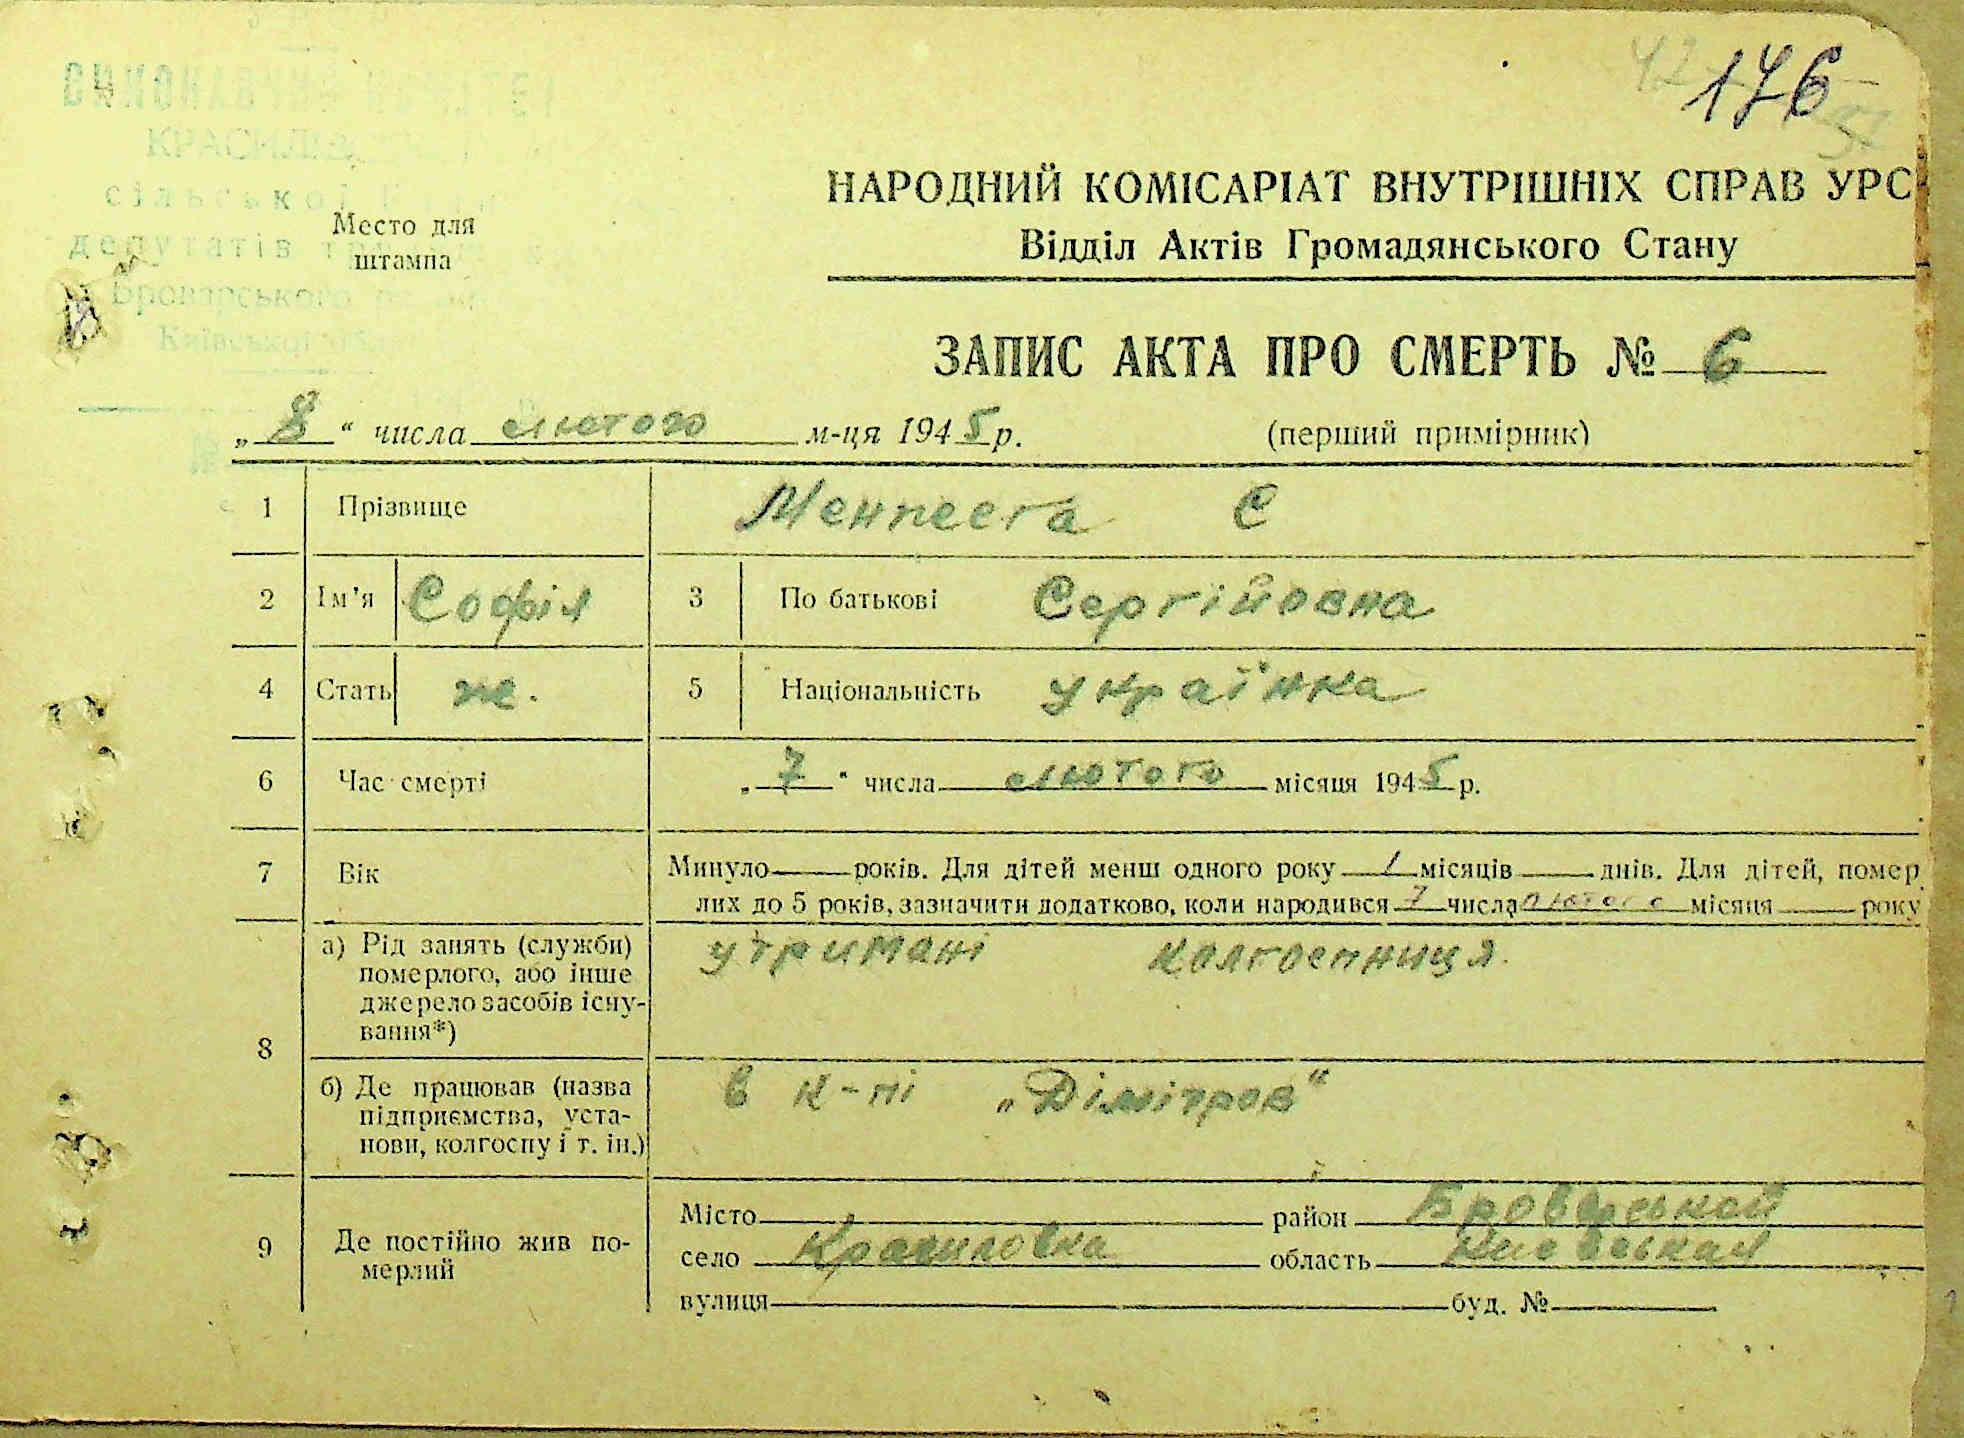 176
КРАСИЛІВ
сільської
депутатів
Броварського
Київської
Место для
штампа
НАРОДНИЙ КОМІСАРІАТ ВНУТРІШНІХ СПРАВ УРС
Відділ Актів Громадянського Стану
ЗАПИС АКТА ПРО СМЕРТЬ № 6
„ 8 “ числа лютого м-ця 1945 р. (перший примірник)
1 Прізвище С
2 Ім'я Софія 3 По батькові Сергійовна
4 Стать ж. 5 Національність українка
6 Час смерті „ 7 “ числа лютого місяця 1945 р.
7 Вік Минуло років. Для дітей менш одного року 1 місяців днів. Для дітей, помер
лих до 5 років, зазначити додатково, коли народився 7 числа лютого місяця року
8 а) Рід занять (служби) утримані колгоспниця.
померлого, або інше
джерело засобів існу-
вання*)
б) Де працював (назва в к-пі „Дімітров“
підприємства, уста-
нови, колгоспу і т. ін.)
9 Де постійно жив по-
мерлий
Місто район Броварський
село Красиловка область Киевская
вулиця буд. №